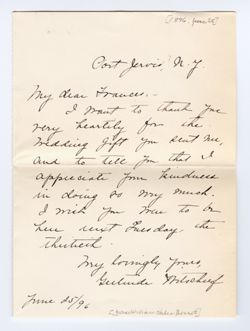 [1896, June 25]
Port Jervis, N.Y.
My dear Frances:-
I want to thank you
very heartily for the
wedding gift you sent me,
and to tell you that I
appreciate your kindness
in doing so very much.
I wish you were to be
here next Tuesday, the
thirtieth.
My lovingly yours,
Gertrude
June 25/96